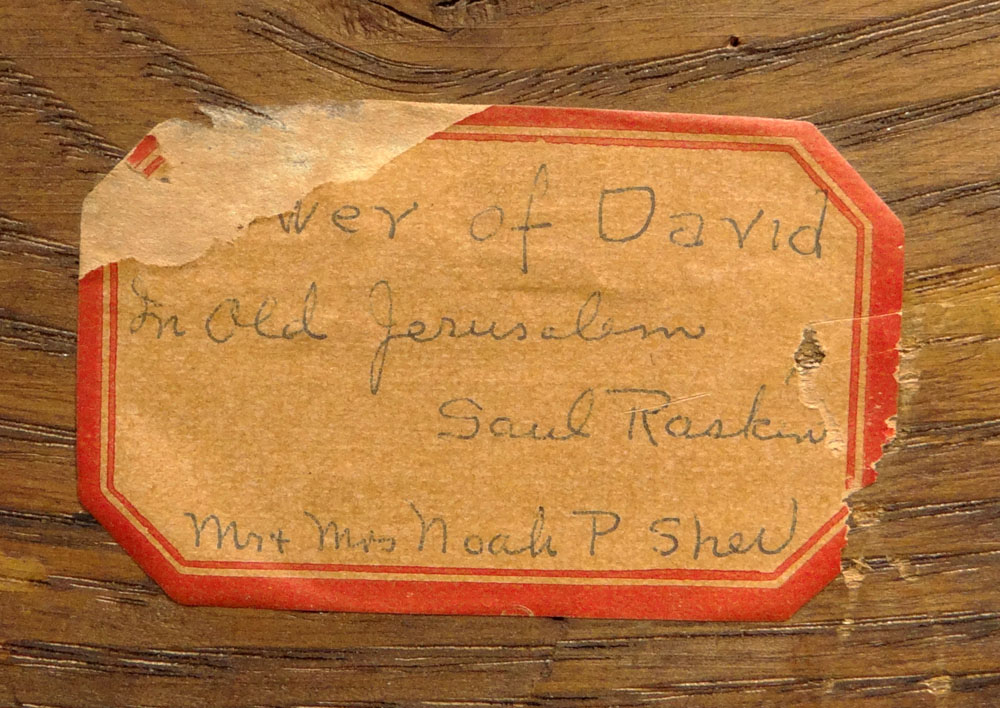 wer of David
In Old Jerusalem
Saul Raskin
Mr + Mrs Noah P Shev